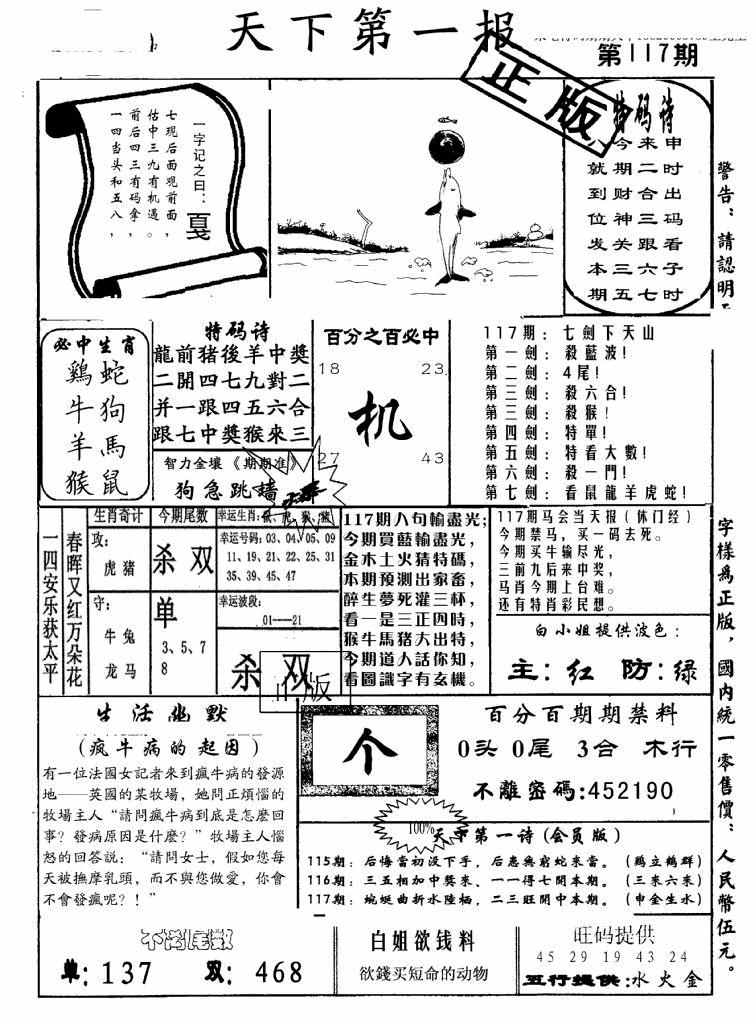 天下第一报
第117期
正版
一字记之曰：戛
七现后面观前面，
估中三九有机遇。
前后四三有码拿，
一四当头和五八，
特码诗
今来申
就期二时
到财合出
位神三码
发关跟看
本三六子
期五七时
警告：請認明
字樣爲正版，國内統一零售價：人民幣伍元。
必中生肖
鷄蛇
牛狗
羊馬
猴鼠
特码诗
龍前猪後羊中獎
二開四七九對二
并一跟四五六合
跟七中獎猴來三
智力金壤《期期准》
狗急跳墙
百分之百必中
18 23
机
27 43
117期：七劍下天山
第一劍：殺藍波！
第二劍：4尾！
第三劍：殺六合！
第三劍：殺猴！
第四劍：特單！
第五劍：特看大數！
第六劍：殺一門！
第七劍：看鼠龍羊虎蛇！
春晖又红万朵花
一四安乐获太平
生肖奇计
攻：
虎猪
守：
牛兔
龙马
今期尾数
杀双
单
3、5、7
8
幸运生肖：
幸运号码：03、04、05、09
11、19、21、22、25、31
35、39、45、47
幸运波段：
01—21
杀双
正版
117期八句輸盡光；
今期買藍輸盡光，
金木土火猜特碼，
本期预测出家畜，
醉生夢死灌三杯，
看一是三正四時，
猴牛馬猪大出特，
今期道人話你知，
看圖識字有玄機。
117期马会当天报（休门经）
今期禁马，买一码去死。
今期买牛输尽光，
三前九后来中奖，
马肖今期上台难。
还有特肖彩民想。
白小姐提供波色：
主：红 防：绿
生活幽默
（疯牛病的起因）
有一位法國女記者來到瘋牛病的發源
地——英國的某牧場，她問正煩惱的
牧場主人“請問瘋牛病到底是怎麼回
事？發病原因是什麼？”牧場主人惱
怒的回答説：“請問女士，假如您每
天被撫摩乳頭，而不與您做愛，你會
不會發瘋呢？！”
个
百分百期期禁料
0头 0尾 3合 木行
不離密碼:452190
100%
天下第一诗(会员版)
115期：后悔當初没下手，后患無窮蛇來當。（鷄立鶴群）
116期：三五相加中獎來、一一得七開本期。（三來六來）
117期：蜿蜒曲折水陸栖，二三旺開中本期。（申金生水）
不离尾数
单：137 双：468
白姐欲钱料
欲錢买短命的动物
旺码提供
45 29 19 43 24
五行提供:水火金